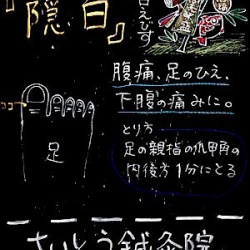 『隠白』
えびす
腹痛、足のひえ、
下腹の痛みに。
とり方
足の親指の爪甲角の
内後方1分にとる
足
さいとう鍼灸院